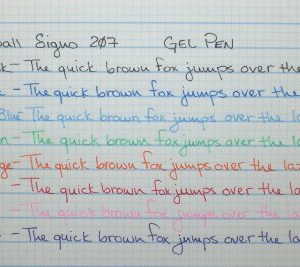 ball Signo 207 GEL PEN
k - The quick brown fox jumps over the
- The quick brown fox jumps over the
Blue - The quick brown fox jumps over the la
n - The quick brown fox jumps over the l
ge - The quick brown fox jumps over the la
- The quick brown fox jumps over the la
- The quick brown fox jumps over the la
- The quick brown fox jumps over the la